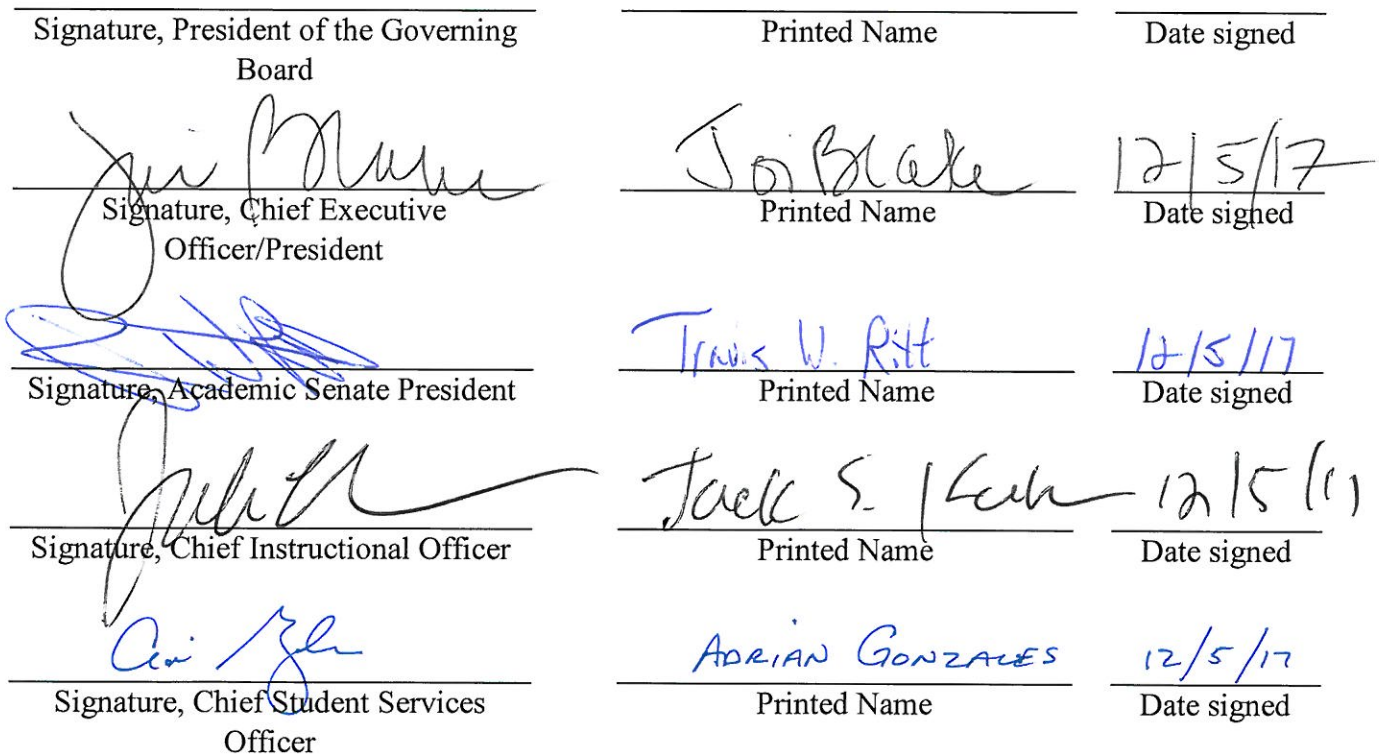 Signature, President of the Governing Board Printed Name Date signed
Joi Blake 12/5/17
Signature, Chief Executive Officer/President Printed Name Date signed
Travis W. Ritt 12/5/17
Signature, Academic Senate President Printed Name Date signed
Jack S. Kahn 12/5/17
Signature, Chief Instructional Officer Printed Name Date signed
ADRIAN GONZALES 12/5/17
Signature, Chief Student Services Officer Printed Name Date signed